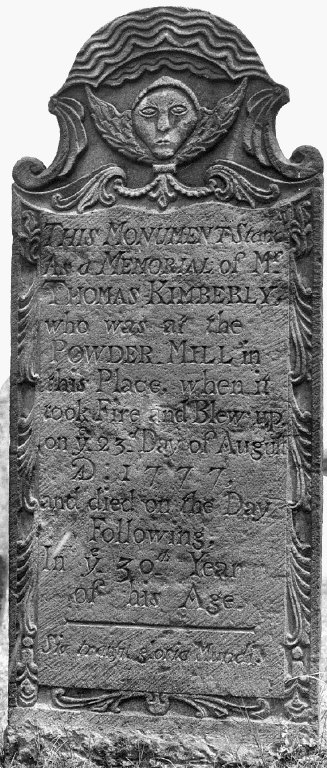 THIS MONUMENT Stands
As a MEMORIAL of Mr.
THOMAS KIMBERLY,
who was at the
POWDER-MILL in
this Place, when it
took Fire and Blew up,
on ye 23d Day of August
D: 1777.
and died on the Day
Following,
In ye 30th Year
of his Age.
Sic transit gloria Mundi.